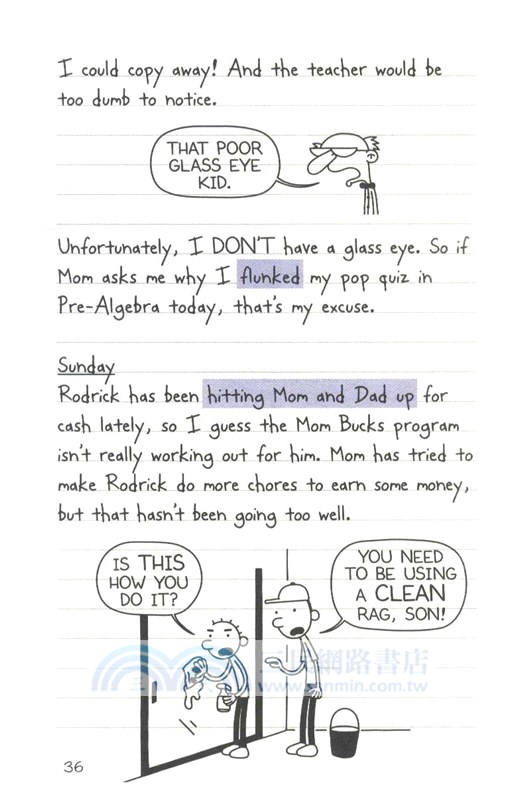 I could copy away! And the teacher would be
too dumb to notice.
THAT POOR
GLASS EYE
KID.
Unfortunately, I DON'T have a glass eye. So if
Mom asks me why I flunked my pop quiz in
Pre-Algebra today, that's my excuse.
Sunday
Rodrick has been hitting Mom and Dad up for
cash lately, so I guess the Mom Bucks program
isn't really working out for him. Mom has tried to
make Rodrick do more chores to earn some money,
but that hasn't been going too well.
IS THIS
HOW YOU
DO IT?
YOU NEED
TO BE USING
A CLEAN
RAG, SON!
三民網路書店
www.sanmin.com.tw
36